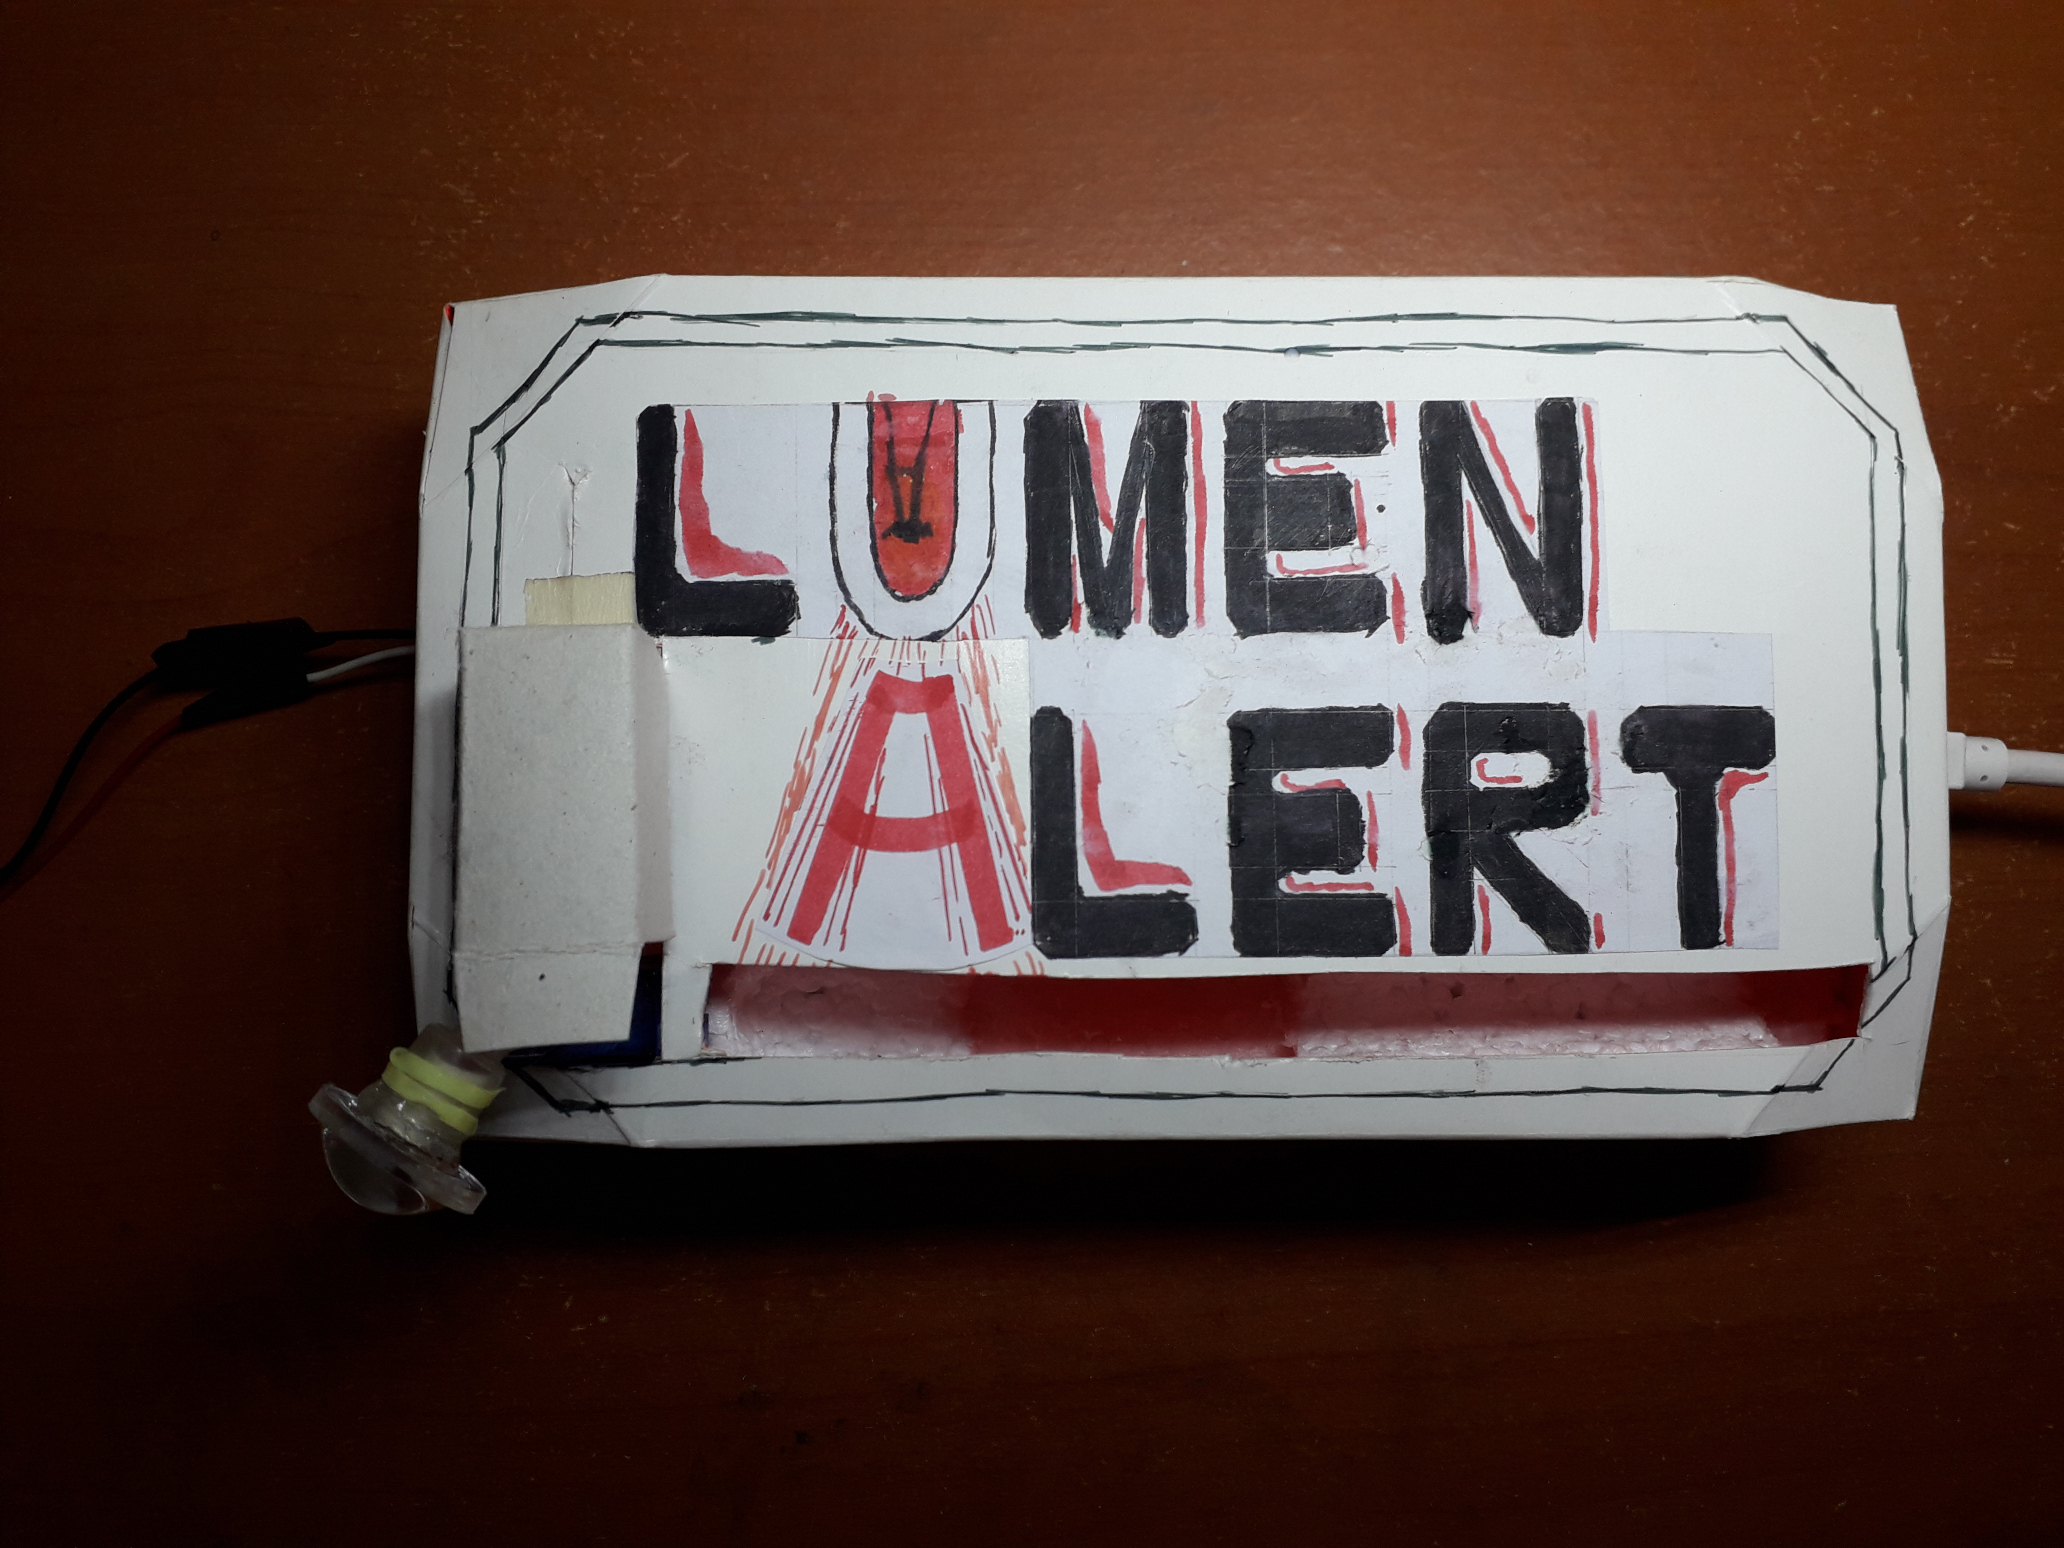 LUMEN
ALERT